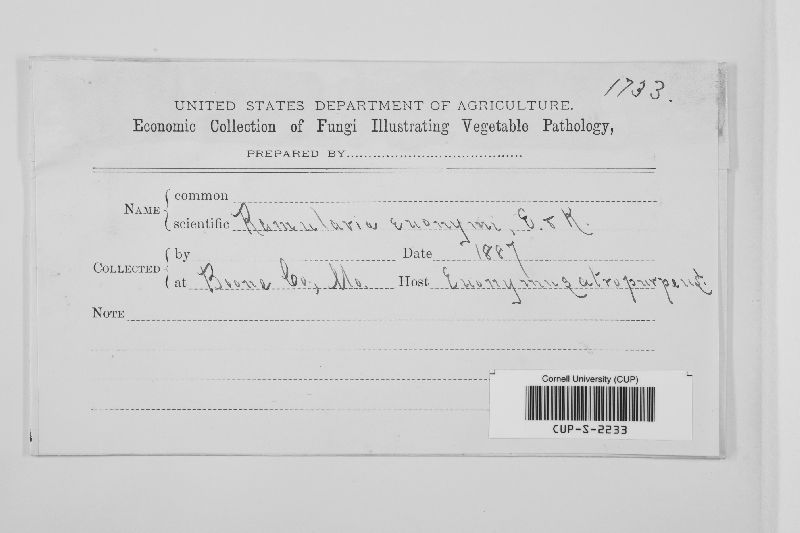 1733.
UNITED STATES DEPARTMENT OF AGRICULTURE.
Economic Collection of Fungi Illustrating Vegetable Pathology,
PREPARED BY
NAME { common
scientific Ramularia euonymi, E. & K.
COLLECTED { by Date 1887
at Boone Co., Mo. Host Euonymus atropurpeus.
NOTE
Cornell University (CUP)
CUP-S-2233